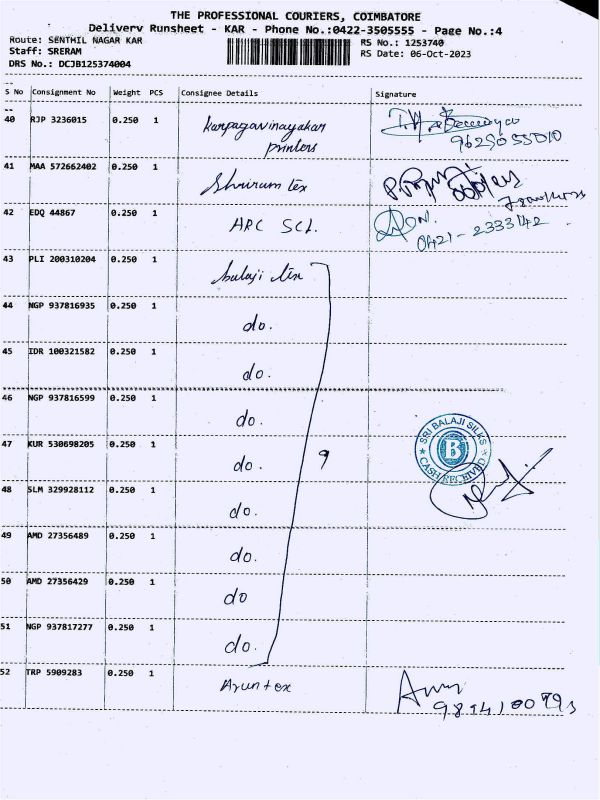 THE PROFESSIONAL COURIERS, COIMBATORE
Delivery Runsheet - KAR - Phone No.:0422-3505555 - Page No.:4
Route: SENTHIL NAGAR KAR RS No.: 1253740
Staff: SRERAM RS Date: 06-Oct-2023
DRS No.: DCJB125374004
S No Consignment No Weight PCS Consignee Details Signature
40 RJP 3236015 0.250 1 Karpagavinayakan
printers
9629055010
41 MAA 572662402 0.250 1 Shriram tex
42 EDQ 44867 0.250 1 ARC SCL.
0421-2333142
43 PLI 200310204 0.250 1 balaji tex
44 NGP 937816935 0.250 1 do.
45 IDR 100321582 0.250 1 do.
46 NGP 937816599 0.250 1 do.
SRI BALAJI SILKS
B
CASH RECEIVED
47 KUR 530698205 0.250 1 do. 9
48 SLM 329928112 0.250 1 do.
49 AMD 27356489 0.250 1 do.
50 AMD 27356429 0.250 1 do
51 NGP 937817277 0.250 1 do.
52 TRP 5909283 0.250 1 Aruntex